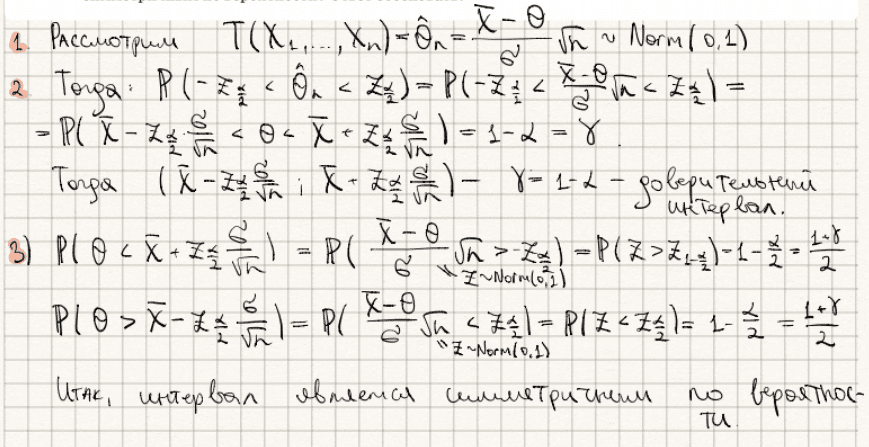 1. Рассмотрим T(X₁,...,Xₙ) = θ̂ₙ = (X̄ − θ)/σ √n ~ Norm(0,1)
2. Тогда: P(−z_{α/2} < θ̂ₙ < z_{α/2}) = P(−z_{α/2} < (X̄ − θ)/σ √n < z_{α/2}) =
= P(X̄ − z_{α/2} · σ/√n < θ < X̄ + z_{α/2} σ/√n) = 1 − α = γ.
Тогда (X̄ − z_{α/2} σ/√n ; X̄ + z_{α/2} σ/√n) — γ = 1 − α — доверительный
интервал.
3) P(θ < X̄ + z_{α/2} σ/√n) = P((X̄ − θ)/σ √n > −z_{α/2}) = P(Z > z_{1−α/2}) = 1 − α/2 = (1+γ)/2
" Z~Norm(0,1)
P(θ > X̄ − z_{α/2} σ/√n) = P((X̄ − θ)/σ √n < z_{α/2}) = P(Z < z_{α/2}) = 1 − α/2 = (1+γ)/2
" Z~Norm(0,1)
Итак, интервал является симметричным по вероятнос-
ти.